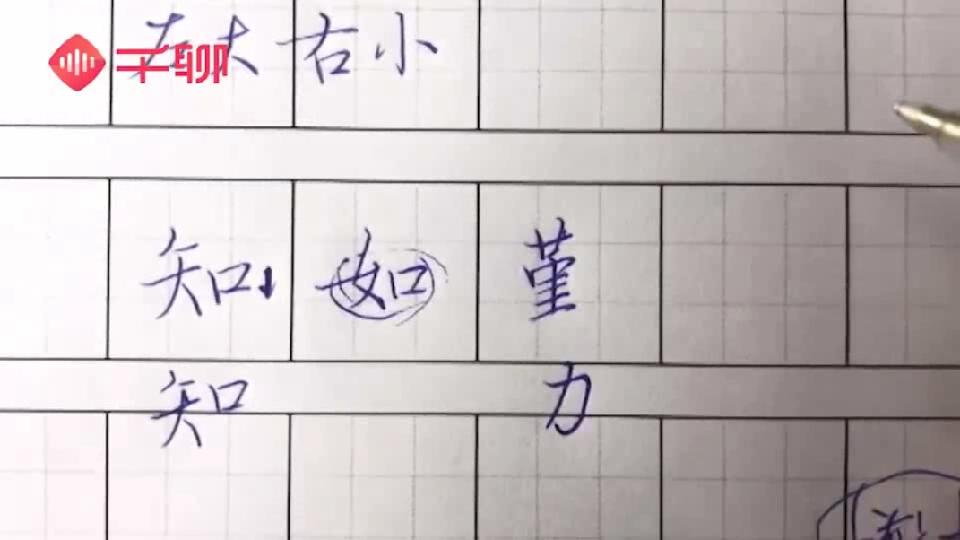 千聊
左大 右小
知 如 堇
知 力